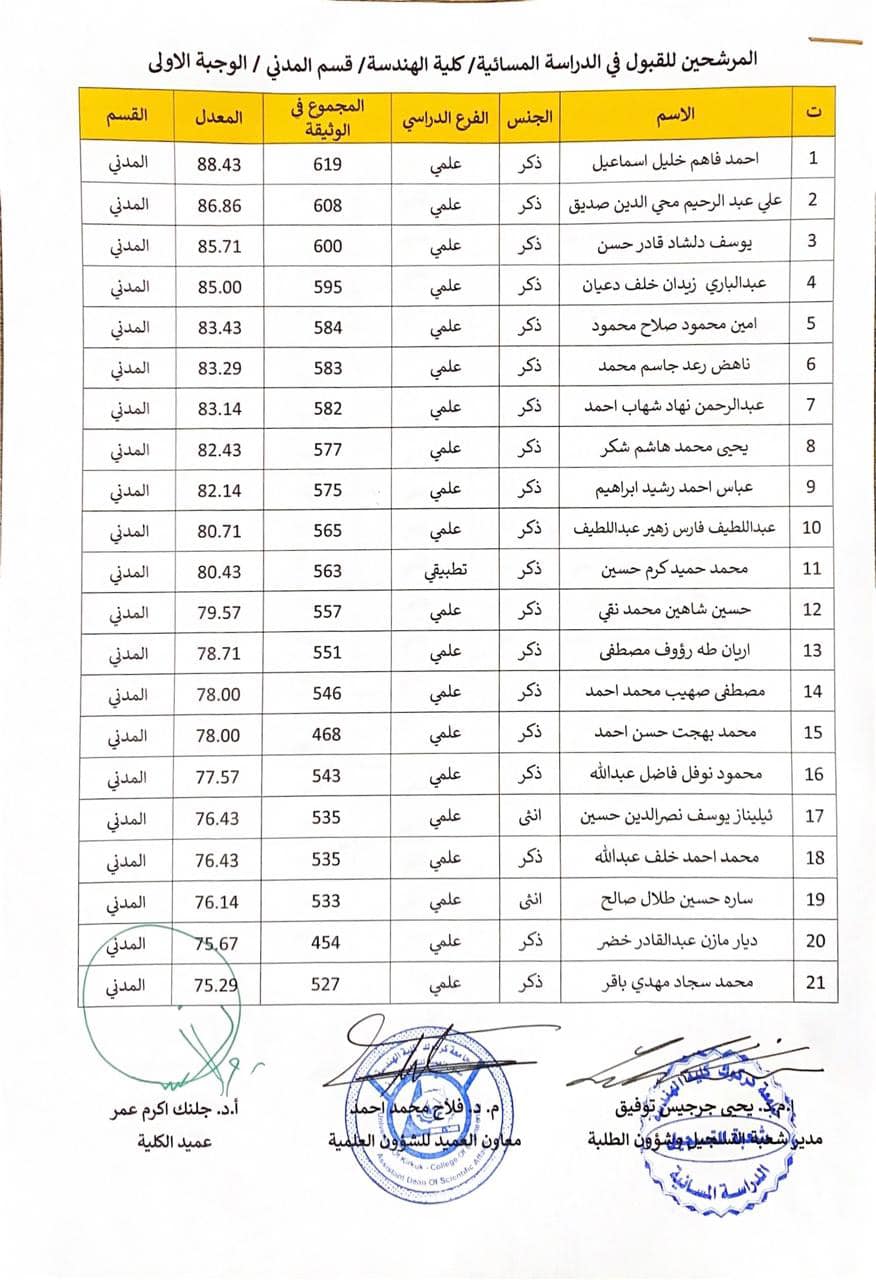 المرشحين للقبول في الدراسة المسائية/ كلية الهندسة/ قسم المدني / الوجبة الاولى
ت الاسم الجنس الفرع الدراسي المجموع في الوثيقة المعدل القسم
1 احمد فاهم خليل اسماعيل ذكر علمي 619 88.43 المدني
2 علي عبد الرحيم محي الدين صديق ذكر علمي 608 86.86 المدني
3 يوسف دلشاد قادر حسن ذكر علمي 600 85.71 المدني
4 عبدالباري زيدان خلف دعيان ذكر علمي 595 85.00 المدني
5 امين محمود صلاح محمود ذكر علمي 584 83.43 المدني
6 ناهض رعد جاسم محمد ذكر علمي 583 83.29 المدني
7 عبدالرحمن نهاد شهاب احمد ذكر علمي 582 83.14 المدني
8 يحيى محمد هاشم شكر ذكر علمي 577 82.43 المدني
9 عباس احمد رشيد ابراهيم ذكر علمي 575 82.14 المدني
10 عبداللطيف فارس زهير عبداللطيف ذكر علمي 565 80.71 المدني
11 محمد حميد كرم حسين ذكر تطبيقي 563 80.43 المدني
12 حسين شاهين محمد نقي ذكر علمي 557 79.57 المدني
13 اريان طه رؤوف مصطفى ذكر علمي 551 78.71 المدني
14 مصطفى صهيب محمد احمد ذكر علمي 546 78.00 المدني
15 محمد بهجت حسن احمد ذكر علمي 468 78.00 المدني
16 محمود نوفل فاضل عبدالله ذكر علمي 543 77.57 المدني
17 ئيليناز يوسف نصرالدين حسين انثى علمي 535 76.43 المدني
18 محمد احمد خلف عبدالله ذكر علمي 535 76.43 المدني
19 ساره حسين طلال صالح انثى علمي 533 76.14 المدني
20 ديار مازن عبدالقادر خضر ذكر علمي 454 75.67 المدني
21 محمد سجاد مهدي باقر ذكر علمي 527 75.29 المدني
أ.م.د. يحيى جرجيس توفيق
مدير شعبة التسجيل وشؤون الطلبة
م. د. فلاح محمد احمد
معاون العميد للشؤون العلمية
أ.د. جلنك اكرم عمر
عميد الكلية
جامعة كركوك كلية الهندسة
شعبة التسجيل
الدراسة المسائية
Of Kirkuk - College Of
Assistant Dean Of Scientific Affairs